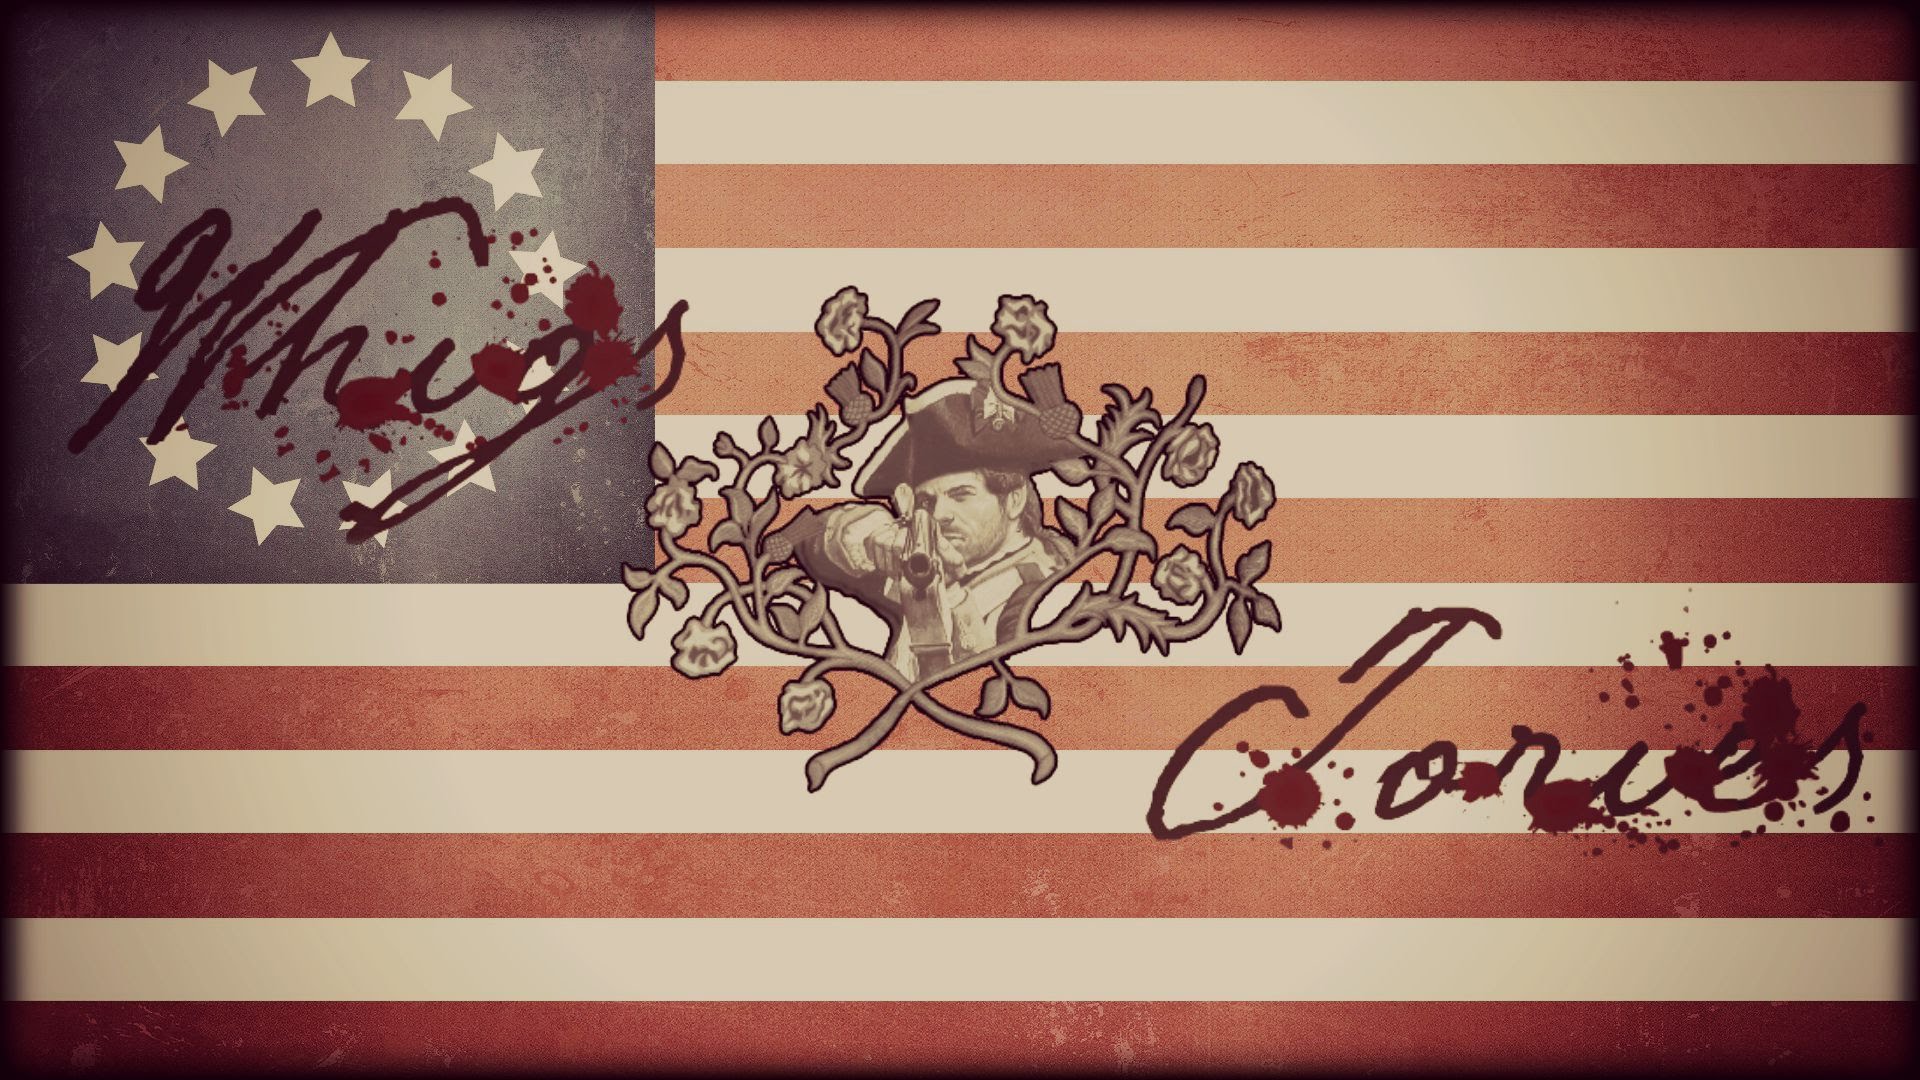 Whigs
Tories